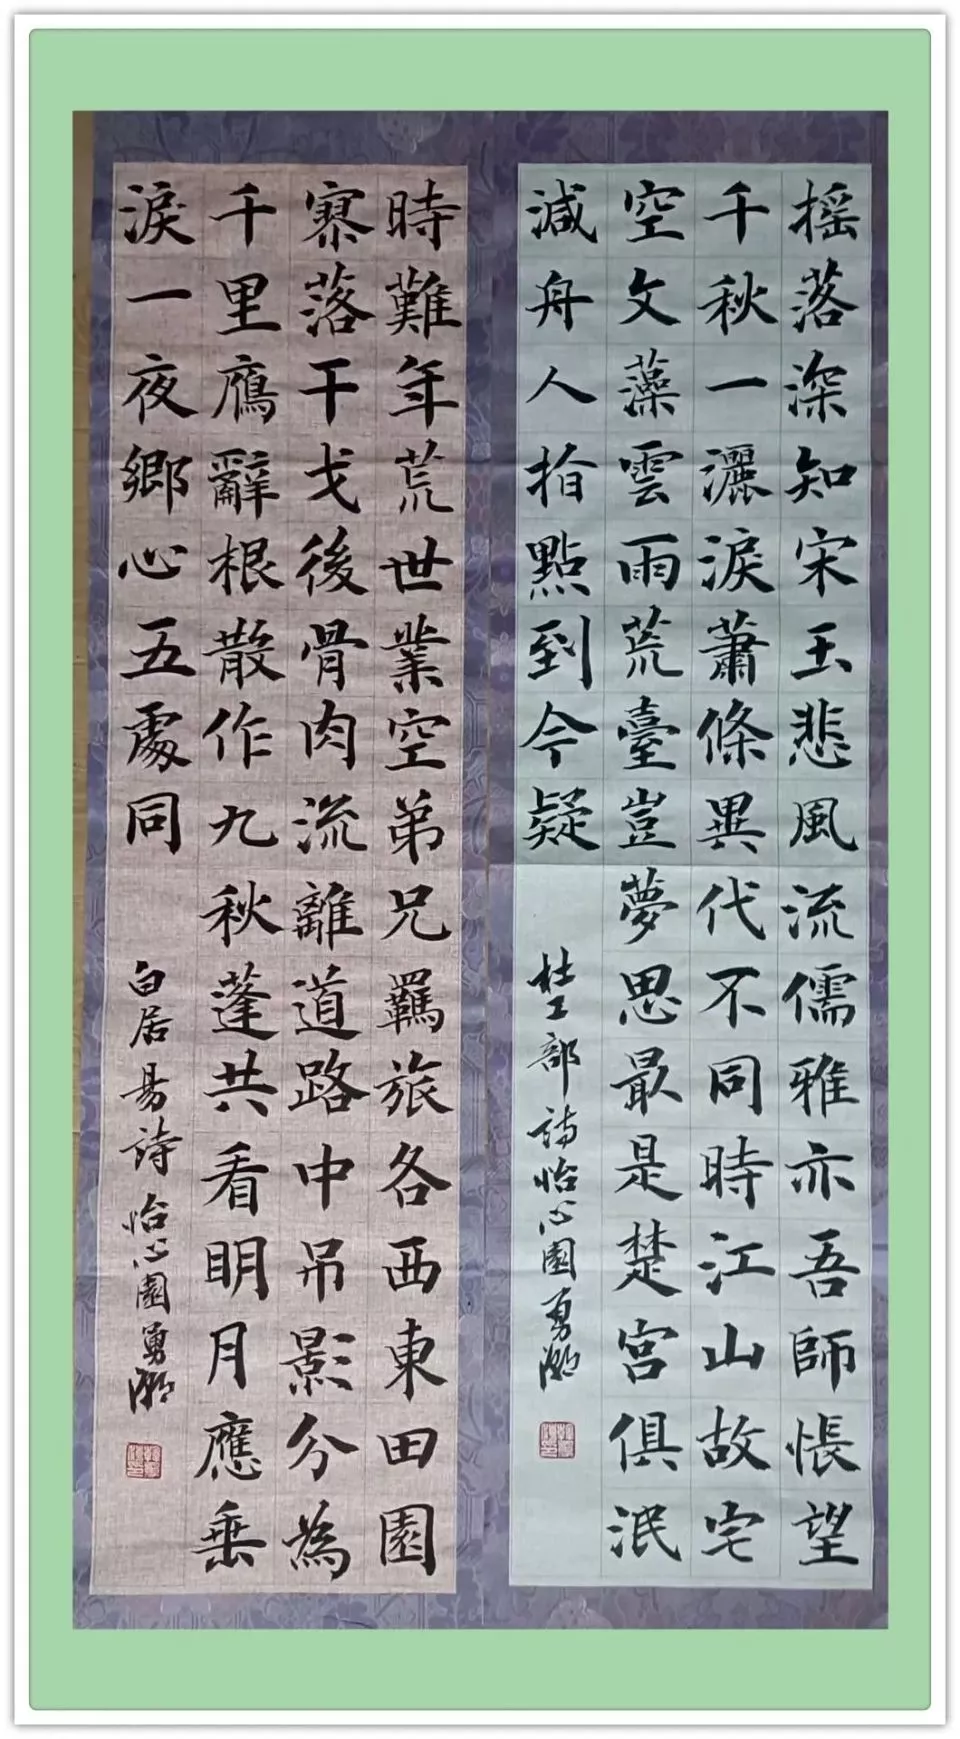 摇落深知宋玉悲風流儒雅亦吾師悵望
千秋一灑淚蕭條異代不同時江山故宅
空文藻雲雨荒臺豈夢思最是楚宫俱泯
減舟人指點到今疑
杜工部詩怡心園勇
時難年荒世業空弟兄羈旅各西東田園
寥落干戈後骨肉流離道路中吊影分為
千里鴈辭根散作九秋蓬共看明月應垂
淚一夜鄉心五處同
白居易詩怡心園勇